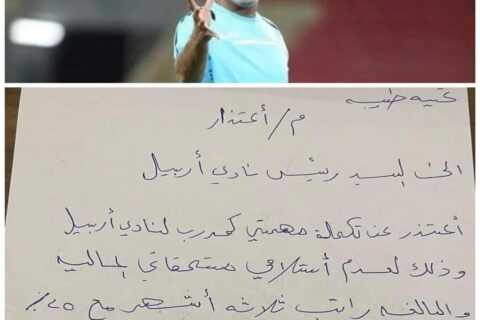 تحية طيبة
م/ أعتذار
الى السيد رئيس نادي أربيل
أعتذر عن تكملة مهمتي كمدرب لنادي أربيل
وذلك لعدم أستلامي مستحقاتي المالية
والبالغه راتب ثلاثه أشهر مع ٢٥٪